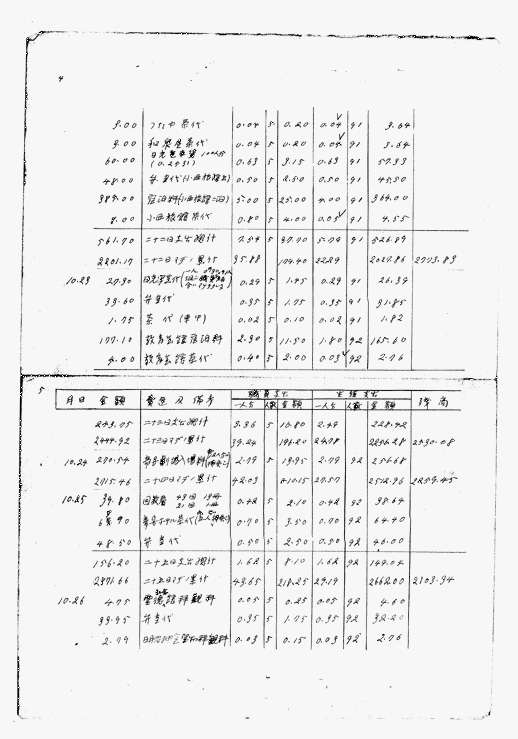 4
3.00 茶代 0.04 5 0.20 0.04 91 3.64
3.00 和泉屋茶代 0.04 5 0.20 0.04 91 3.64
60.00 (0.2451) 0.63 5 3.15 0.63 91 57.33
48.00 弁当代 0.50 5 2.50 0.50 91 45.50
389.00 宿泊料(小西旅館二泊) 5.00 5 25.00 4.00 91 364.00
8.00 小西旅館茶代 0.80 5 4.00 0.05 91 4.55
561.70 二十二日支出総計 7.54 5 37.70 5.79 91 526.89
2201.17 二十二日マデノ累計 35.88 179.40 22.29 2027.86 2773.83
10.23 27.30 0.29 5 1.45 0.29 91 26.39
33.60 弁当代 0.35 5 1.75 0.35 91 31.85
1.75 茶代(車中) 0.02 5 0.10 0.02 91 1.82
177.10 教育会館宿泊料 2.30 5 11.50 1.80 92 165.60
4.00 教育会館茶代 0.40 5 2.00 0.03 92 2.76
5
職員支出 生徒支出
月日 金額 費途及備考 一人分 人数 金額 一人分 人数 金額 残高
243.75 二十三日支出総計 3.36 5 16.80 2.49 228.42
2444.92 二十三日マデノ累計 39.24 196.20 24.78 2256.28 2530.08
10.24 270.54 2.79 5 13.95 2.79 92 256.68
2715.46 二十四日マデノ累計 42.03 210.15 27.57 2512.96 2259.45
10.25 39.80 回数券 0.42 5 2.10 0.42 92 38.64
67.90 0.70 5 3.50 0.70 92 64.40
48.50 弁当代 0.50 5 2.50 0.50 92 46.00
156.20 二十五日支出総計 1.62 5 8.10 1.62 92 149.04
2871.66 二十五日マデノ累計 43.65 218.25 29.19 2662.00 2103.34
10.26 4.75 拝観料 0.05 5 0.25 0.05 92 4.60
33.95 弁当代 0.35 5 1.75 0.35 92 32.20
2.79 拝観料 0.03 5 0.15 0.03 92 2.76